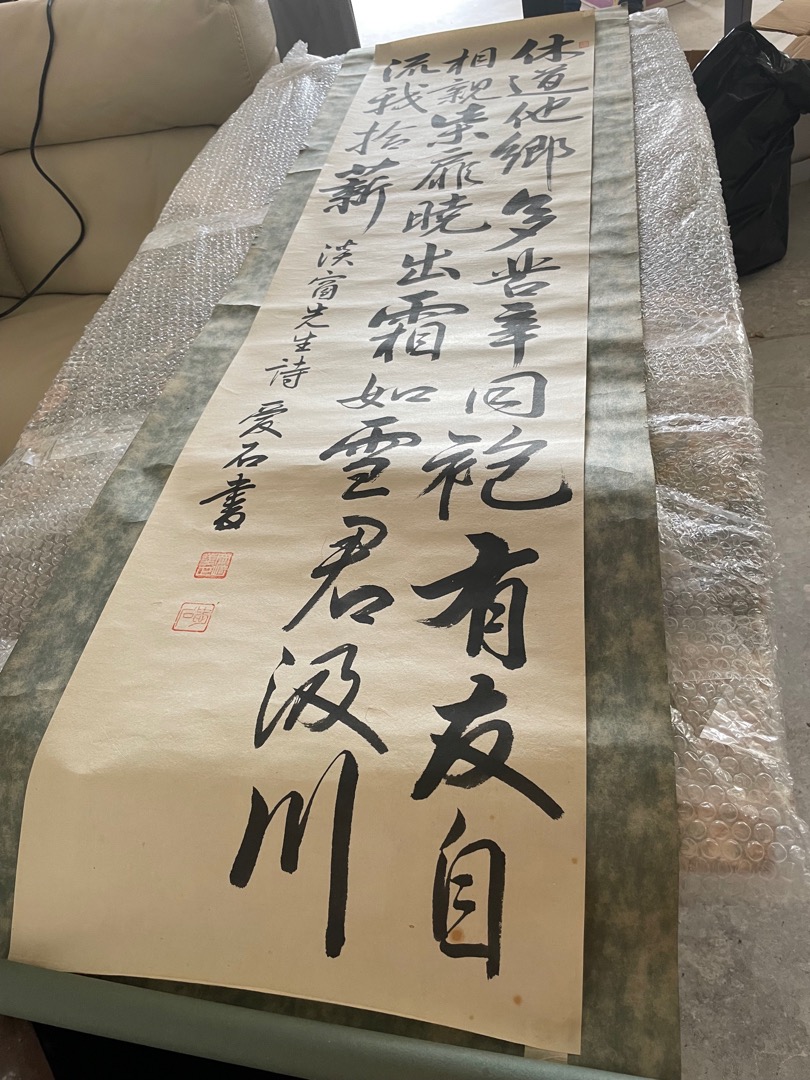 休道他郷多苦辛同袍有友自
相親柴扉暁出霜如雪君汲川
流我拾薪
淡窗先生詩 愛石書